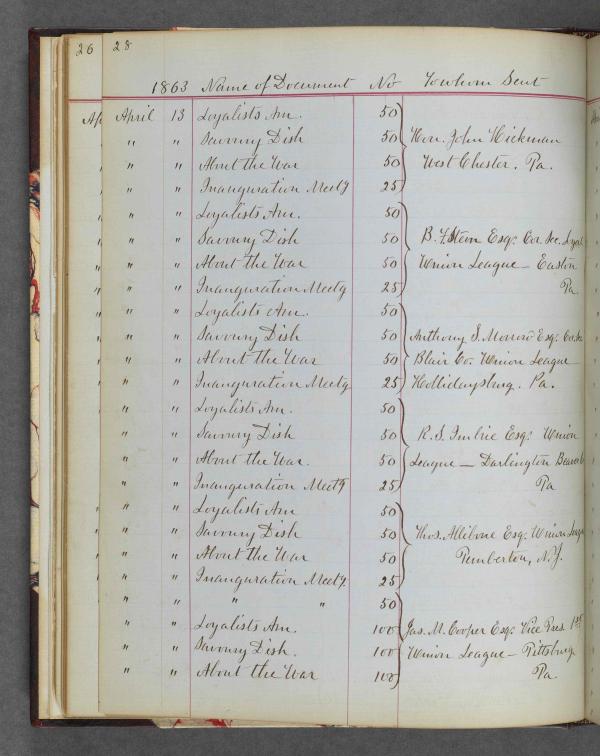 26 28
1863 Name of Document No To whom Sent
Ap April 13 Loyalists Am. 50
" " Savoury Dish 50 Hon. John Hickman
" " About the War 50 West Chester. Pa.
" " Inauguration Meetg 25
" " Loyalists Am. 50
" " Savoury Dish 50 B. F. Stem Esq. Cor. Sec. Loyal
" " About the War 50 Union League — Easton
" " Inauguration Meetg 25 Pa.
" " Loyalists Am. 50
" " Savoury Dish 50 Anthony S. Morrow Esq. Cor. Sec
" " About the War 50 Blair Co. Union League
" " Inauguration Meetg 25 Hollidaysburg. Pa.
" " Loyalists Am. 50
" " Savoury Dish 50 R. S. Imbrie Esq. Union
" " About the War. 50 League — Darlington Beaver
" " Inauguration Meetg 25 Pa
" " Loyalists Am 50
" " Savoury Dish 50 Thos. Allibone Esq. Union League
" " About the War 50 Pemberton, N.J.
" " Inauguration Meetg. 25
" " " " 50
" " Loyalists Am. 100 Jas. M. Cooper Esq. Vice Pres 1st
" " Savoury Dish. 100 Union League — Pittsburg
" " About the War 100 Pa.